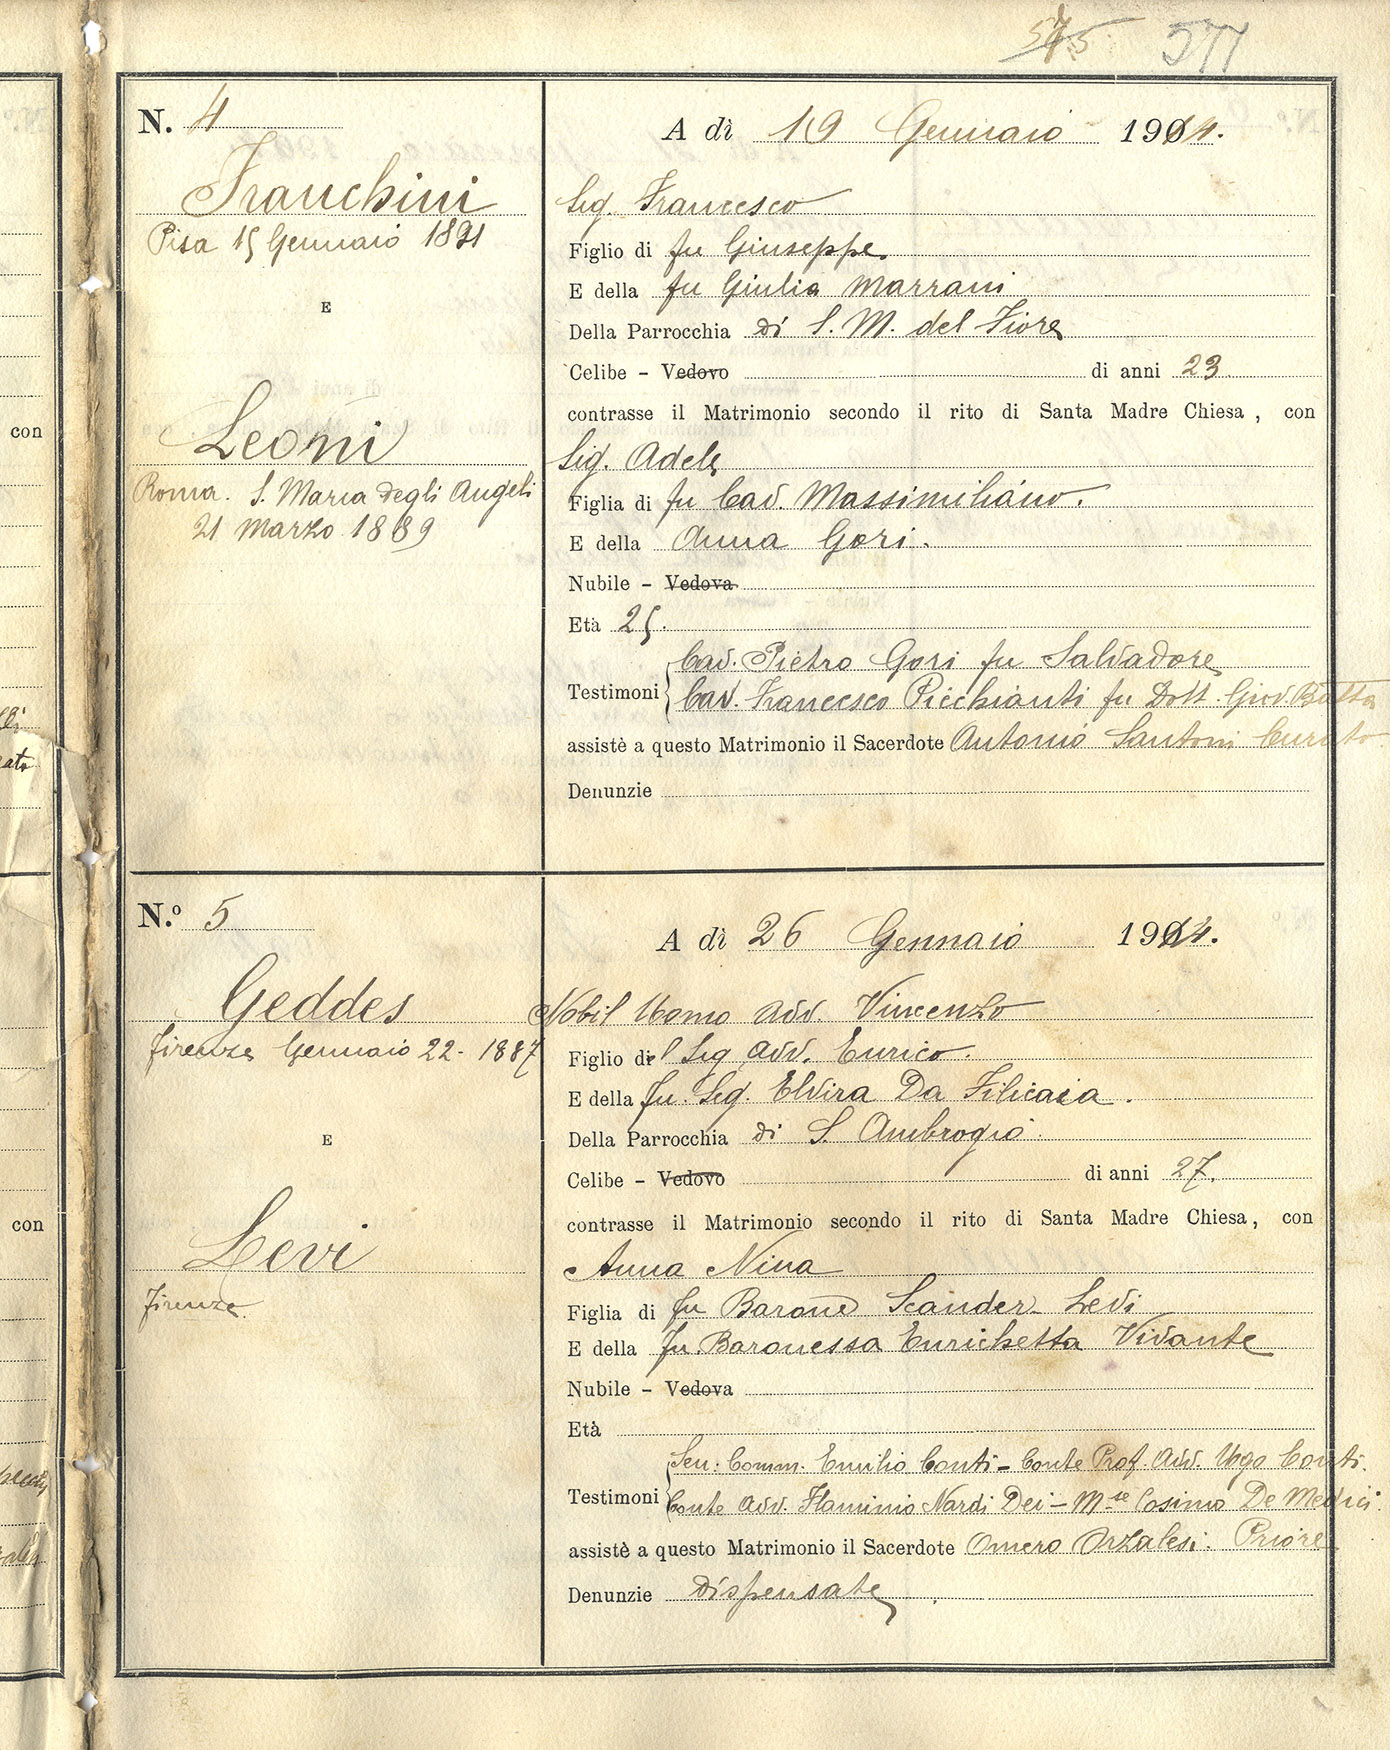 575 577
N. 4
A dì 19 Gennaio 1914.
Franchini
Pisa 15 Gennaio 1891
E
Leoni
Roma. S. Maria degli Angeli
21 Marzo 1889
Sig. Francesco
Figlio di fu Giuseppe
E della fu Giulia Marrani
Della Parrocchia di S. M. del Fiore
Celibe - Vedovo di anni 23
contrasse il Matrimonio secondo il rito di Santa Madre Chiesa, con
Sig. Adele
Figlia di fu Cav. Massimiliano.
E della Anna Gori.
Nubile - Vedova
Età 25.
Testimoni Cav. Pietro Gori fu Salvadore
Cav. Francesco Picchianti fu Dott. Giov. Batta
assistè a questo Matrimonio il Sacerdote Antonio Santoni Curato
Denunzie
N.º 5
A dì 26 Gennaio 1914.
Geddes
Firenze Gennaio 22 - 1887
E
Levi
Firenze
Nobil Uomo Avv. Vincenzo
Figlio del Sig. Avv. Enrico.
E della fu Sig. Elvira Da Filicaia.
Della Parrocchia di S. Ambrogio
Celibe - Vedovo di anni 27.
contrasse il Matrimonio secondo il rito di Santa Madre Chiesa, con
Anna Nina
Figlia di fu Barone Scander Levi
E della fu Baronessa Enrichetta Vivante
Nubile - Vedova
Età
Testimoni Sen: Comm. Emilio Conti - Conte Prof. Avv. Ugo Conti.
Conte Avv. Flaminio Nardi Dei - M.se Cosimo De Medici.
assistè a questo Matrimonio il Sacerdote Omero Orzalesi. Priore
Denunzie dispensate
con
con